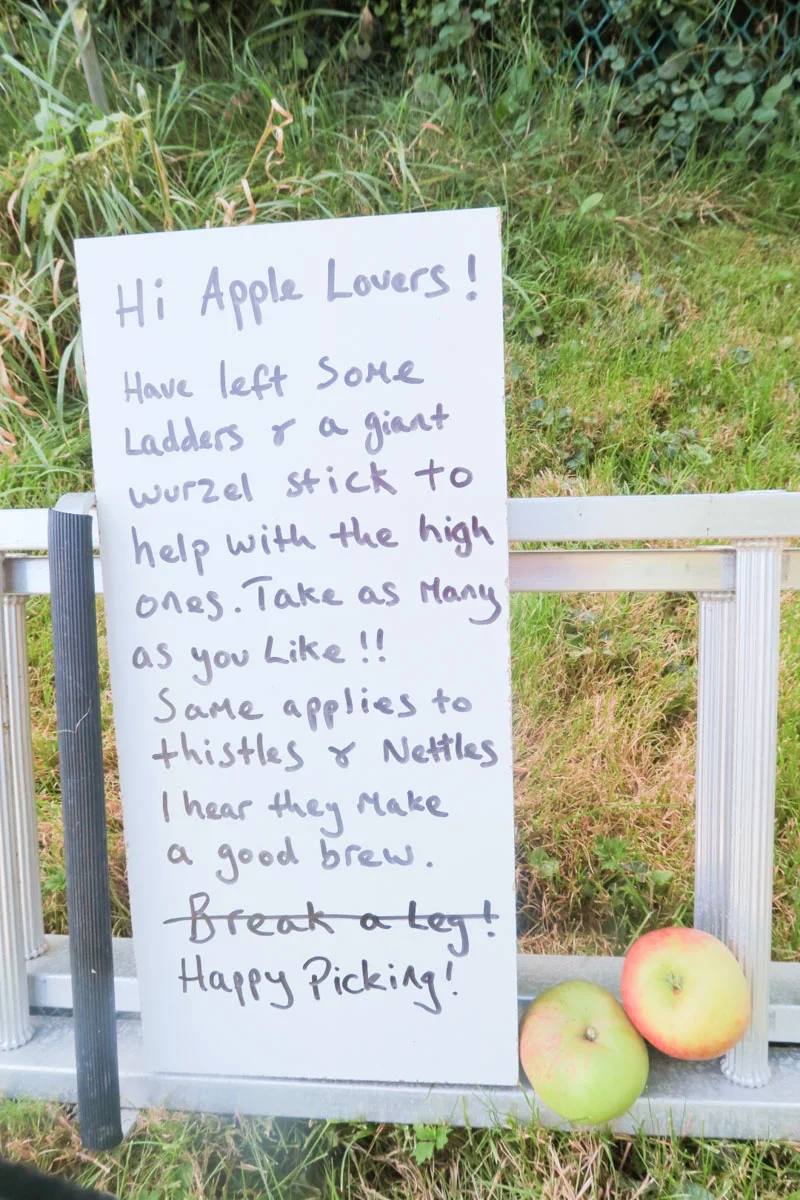 Hi Apple Lovers!
Have left some
Ladders & a giant
wurzel stick to
help with the high
ones. Take as Many
as you Like!!
Same applies to
thistles & Nettles
I hear they Make
a good brew.
Break a Leg!
Happy Picking!